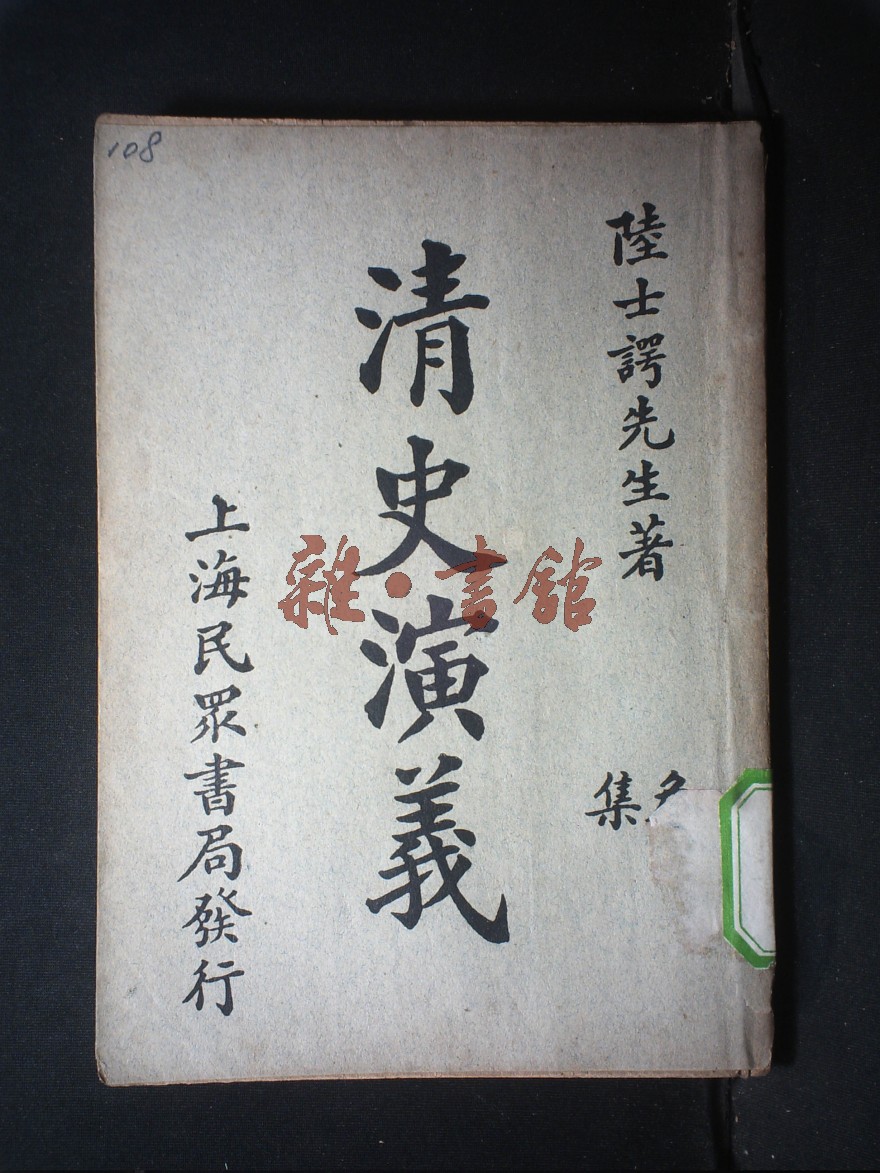 108
陸士諤先生著
集
清史演義
上海民眾書局發行
雜·書館